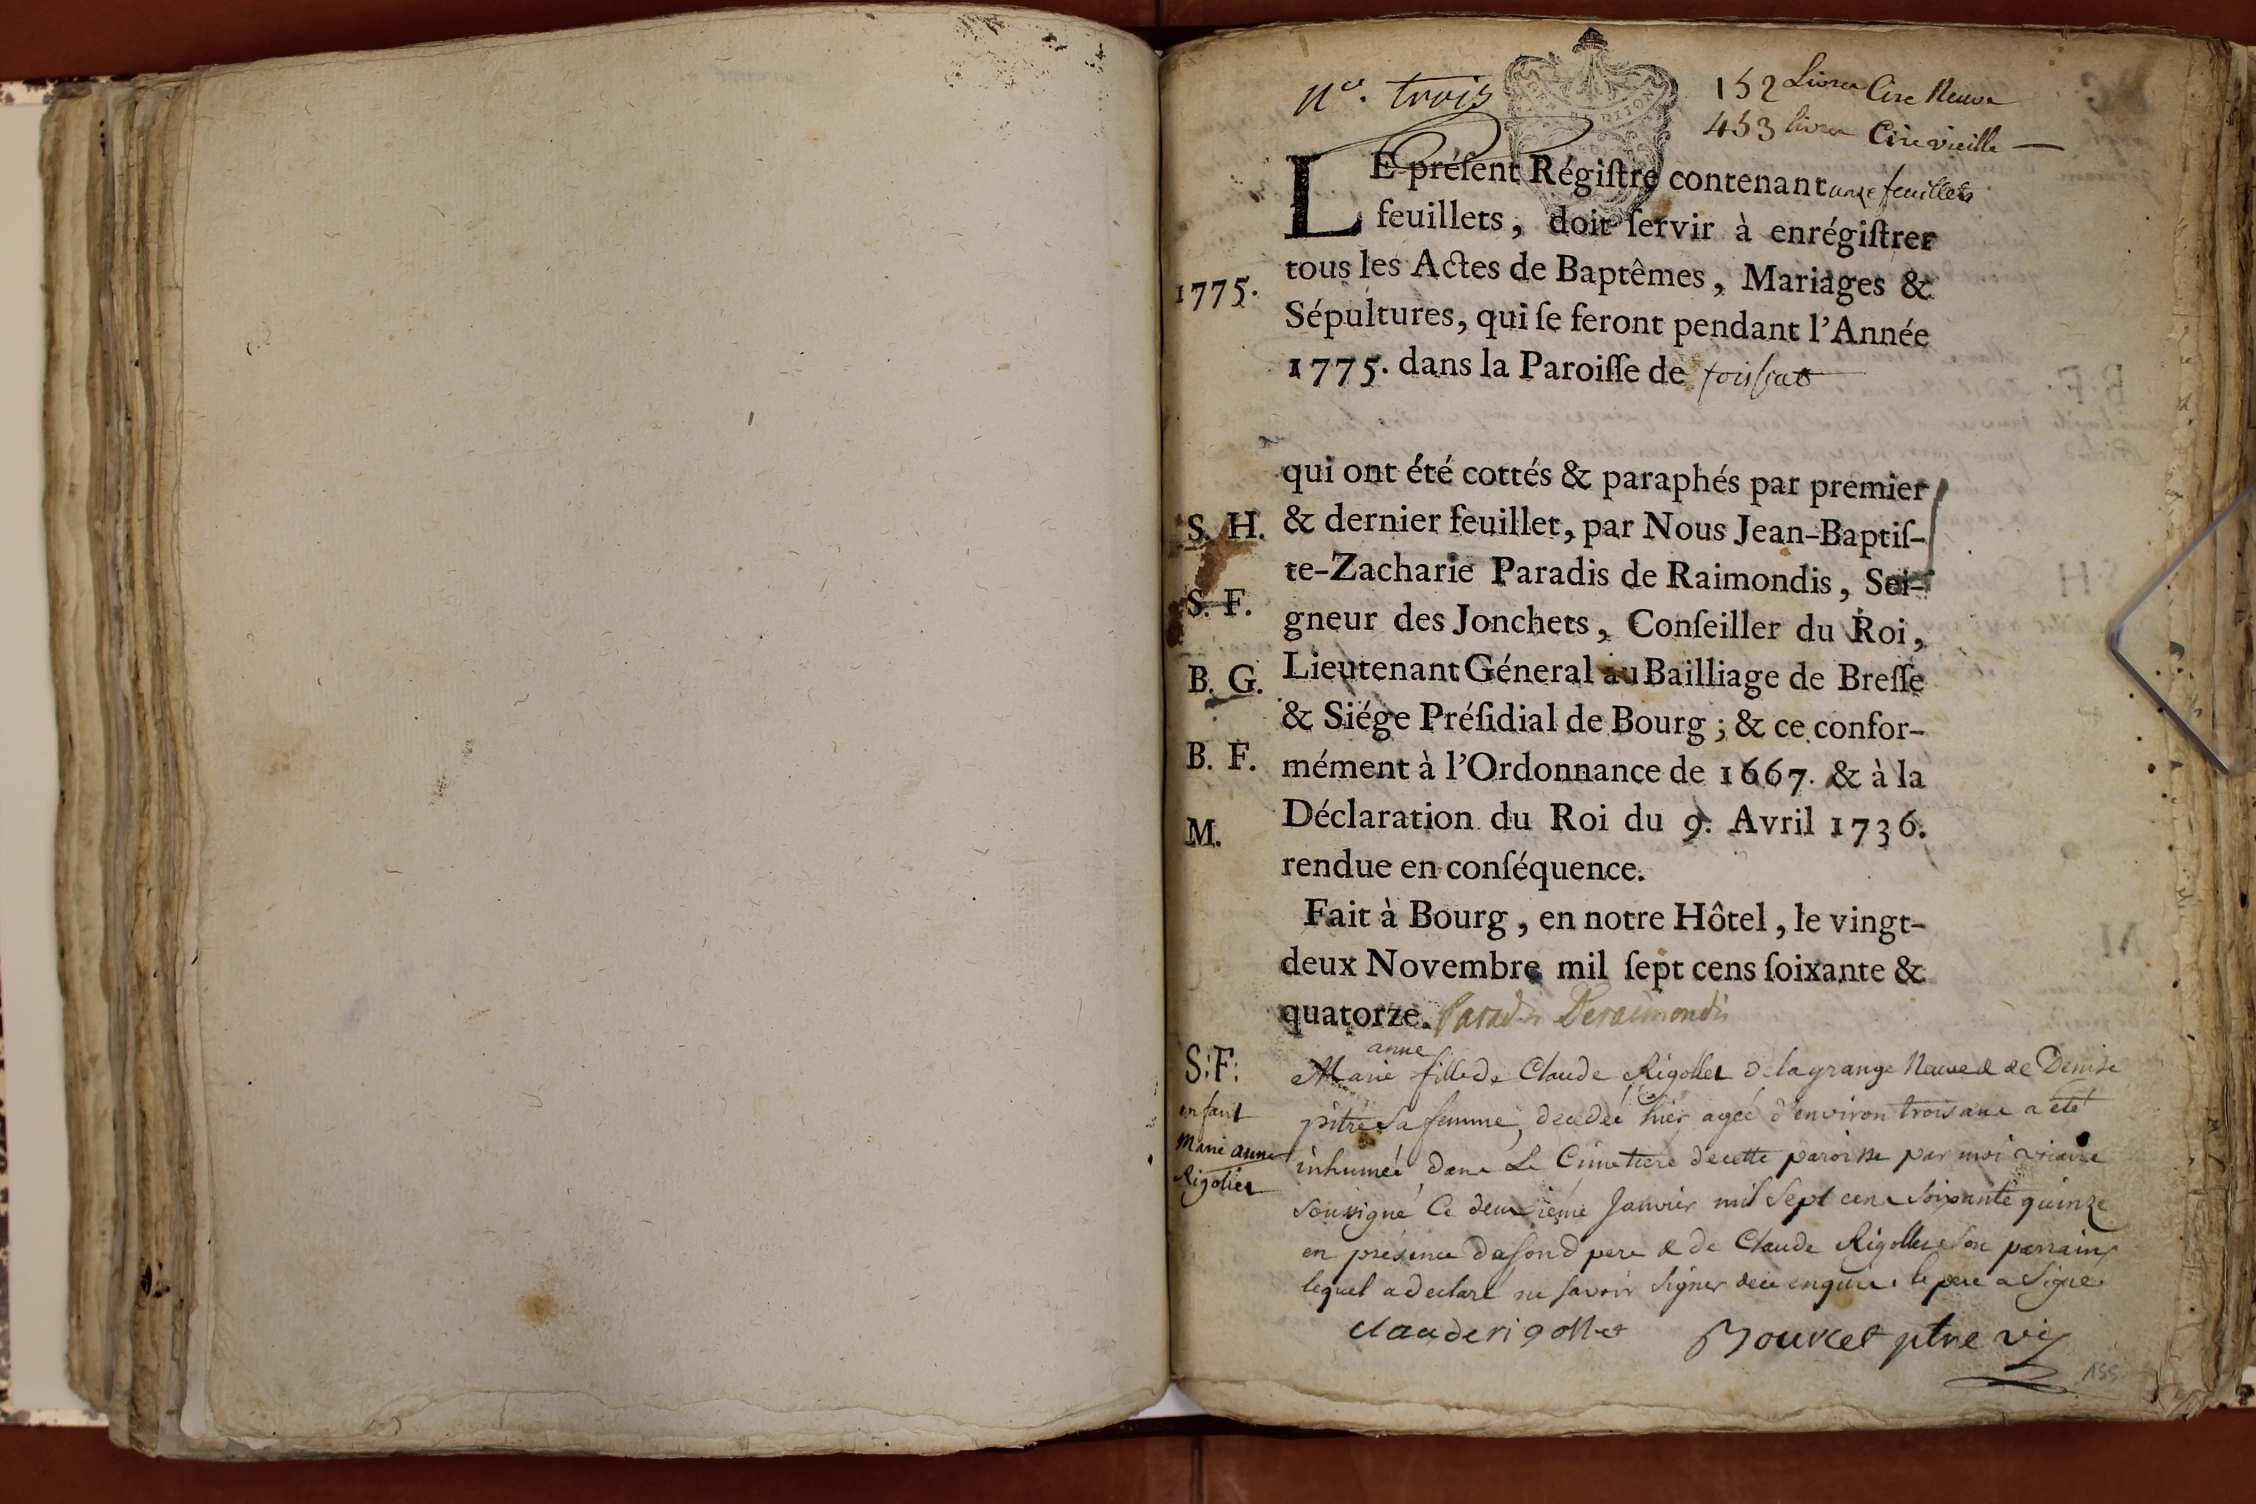 n.o trois
152 Livres Cire Neuve
453 livres Cire vieille
LE préſent Régiſtre contenant onze feuillets
feuillets, doit ſervir à enrégiſtrer
tous les Actes de Baptêmes, Mariages &
1775.
Sépultures, qui ſe feront pendant l'Année
1775. dans la Paroiſſe de foissiat
qui ont été cottés & paraphés par premier
S. H.
& dernier feuillet, par Nous Jean-Baptiſ-
te-Zacharie Paradis de Raimondis, Sei-
S. F.
gneur des Jonchets, Conſeiller du Roi,
B. G.
Lieutenant Géneral au Bailliage de Breſſe
& Siége Préſidial de Bourg ; & ce confor-
B. F.
mément à l'Ordonnance de 1667. & à la
Déclaration du Roi du 9. Avril 1736.
M.
rendue en conſéquence.
Fait à Bourg, en notre Hôtel, le vingt-
deux Novembre mil ſept cens ſoixante &
quatorze. Paradis Deraimondis
S:F:
enfant
Marie anne
Rigollet
anne
Marie fille de Claude Rigollet de la grange Neuve & de Denise
pitre sa femme, decedée hier agée d'environ trois ans a été
inhumée dans Le Cimetiere de cette paroisse par moi vicaire
soussigné Ce deuxième Janvier mil sept cens soixante quinze
en présence de son d pere & de Claude Rigollet son parrain
lequel a declaré ne savoir signer de ce enquis. le pere a signé.
claude rigollet
Bourcet ptre vic
155